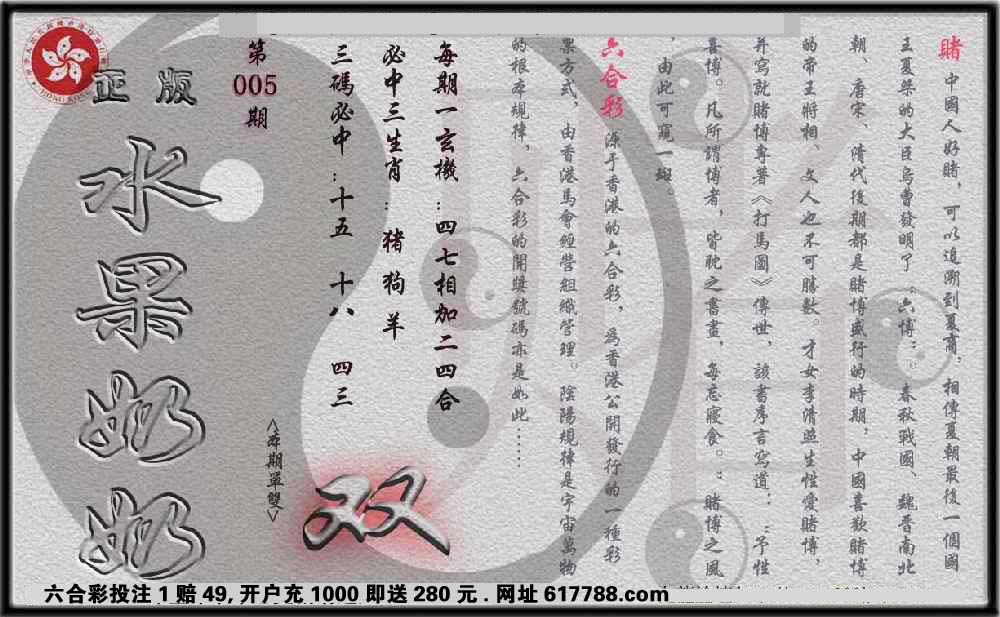 賭 中國人好賭，可以追溯到夏商，相傳夏朝最後一個國
王夏桀的大臣烏曹發明了“六博”；春秋戰國、魏晉南北
朝、唐宋、清代後期都是賭博盛行的時期，中國喜歡賭博
的帝王將相、文人也不可勝數。才女李清照生性愛賭博，
并寫就賭博專著《打馬圖》傳世，該書序言寫道：“予性
喜博。凡所謂博者，皆耽之晝夜，每忘寢食。”賭博之風
，由此可窺一斑。
六合彩 源于香港的六合彩，為香港公開發行的一種彩
票方式，由香港馬會經營組織管理。陰陽規律是宇宙萬物
的根本規律，六合彩的開獎號碼亦是如此……
每期一玄機：四七相加二四合
必中三生肖：豬狗羊
三碼必中：十五 十八 四三
第005期
<本期單雙>
双
正版
水果奶奶
六合彩投注1赔49,开户充1000即送280元.网址617788.com